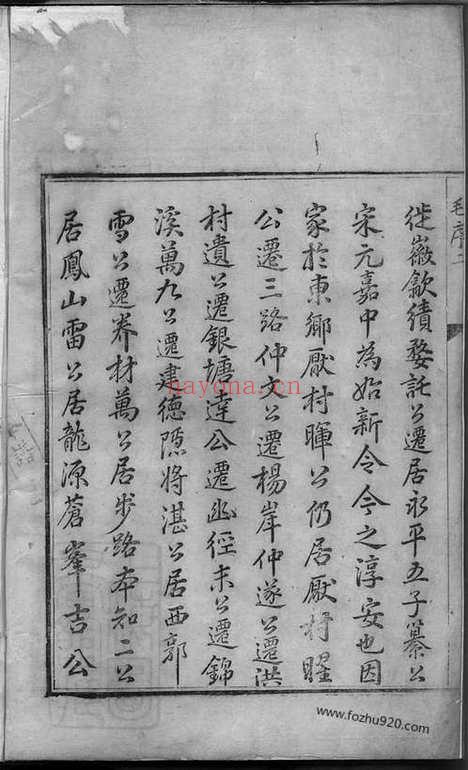 徙徽歙績婺託公遷居永平五子纂公
宋元嘉中為始新令今之淳安也因
家於東鄉厭村暉公仍居厭村暒
公遷三路仲文公遷楊岸仲遂公遷洪
村遺公遷銀塘達公遷幽徑未公遷錦
溪萬九公遷建德隱將湛公居西郭
雪公遷券村萬公居步路本知二公
居鳳山雷公居龍源蒼峯吉公
毛序二
nayona.cn
www.fozhu920.com